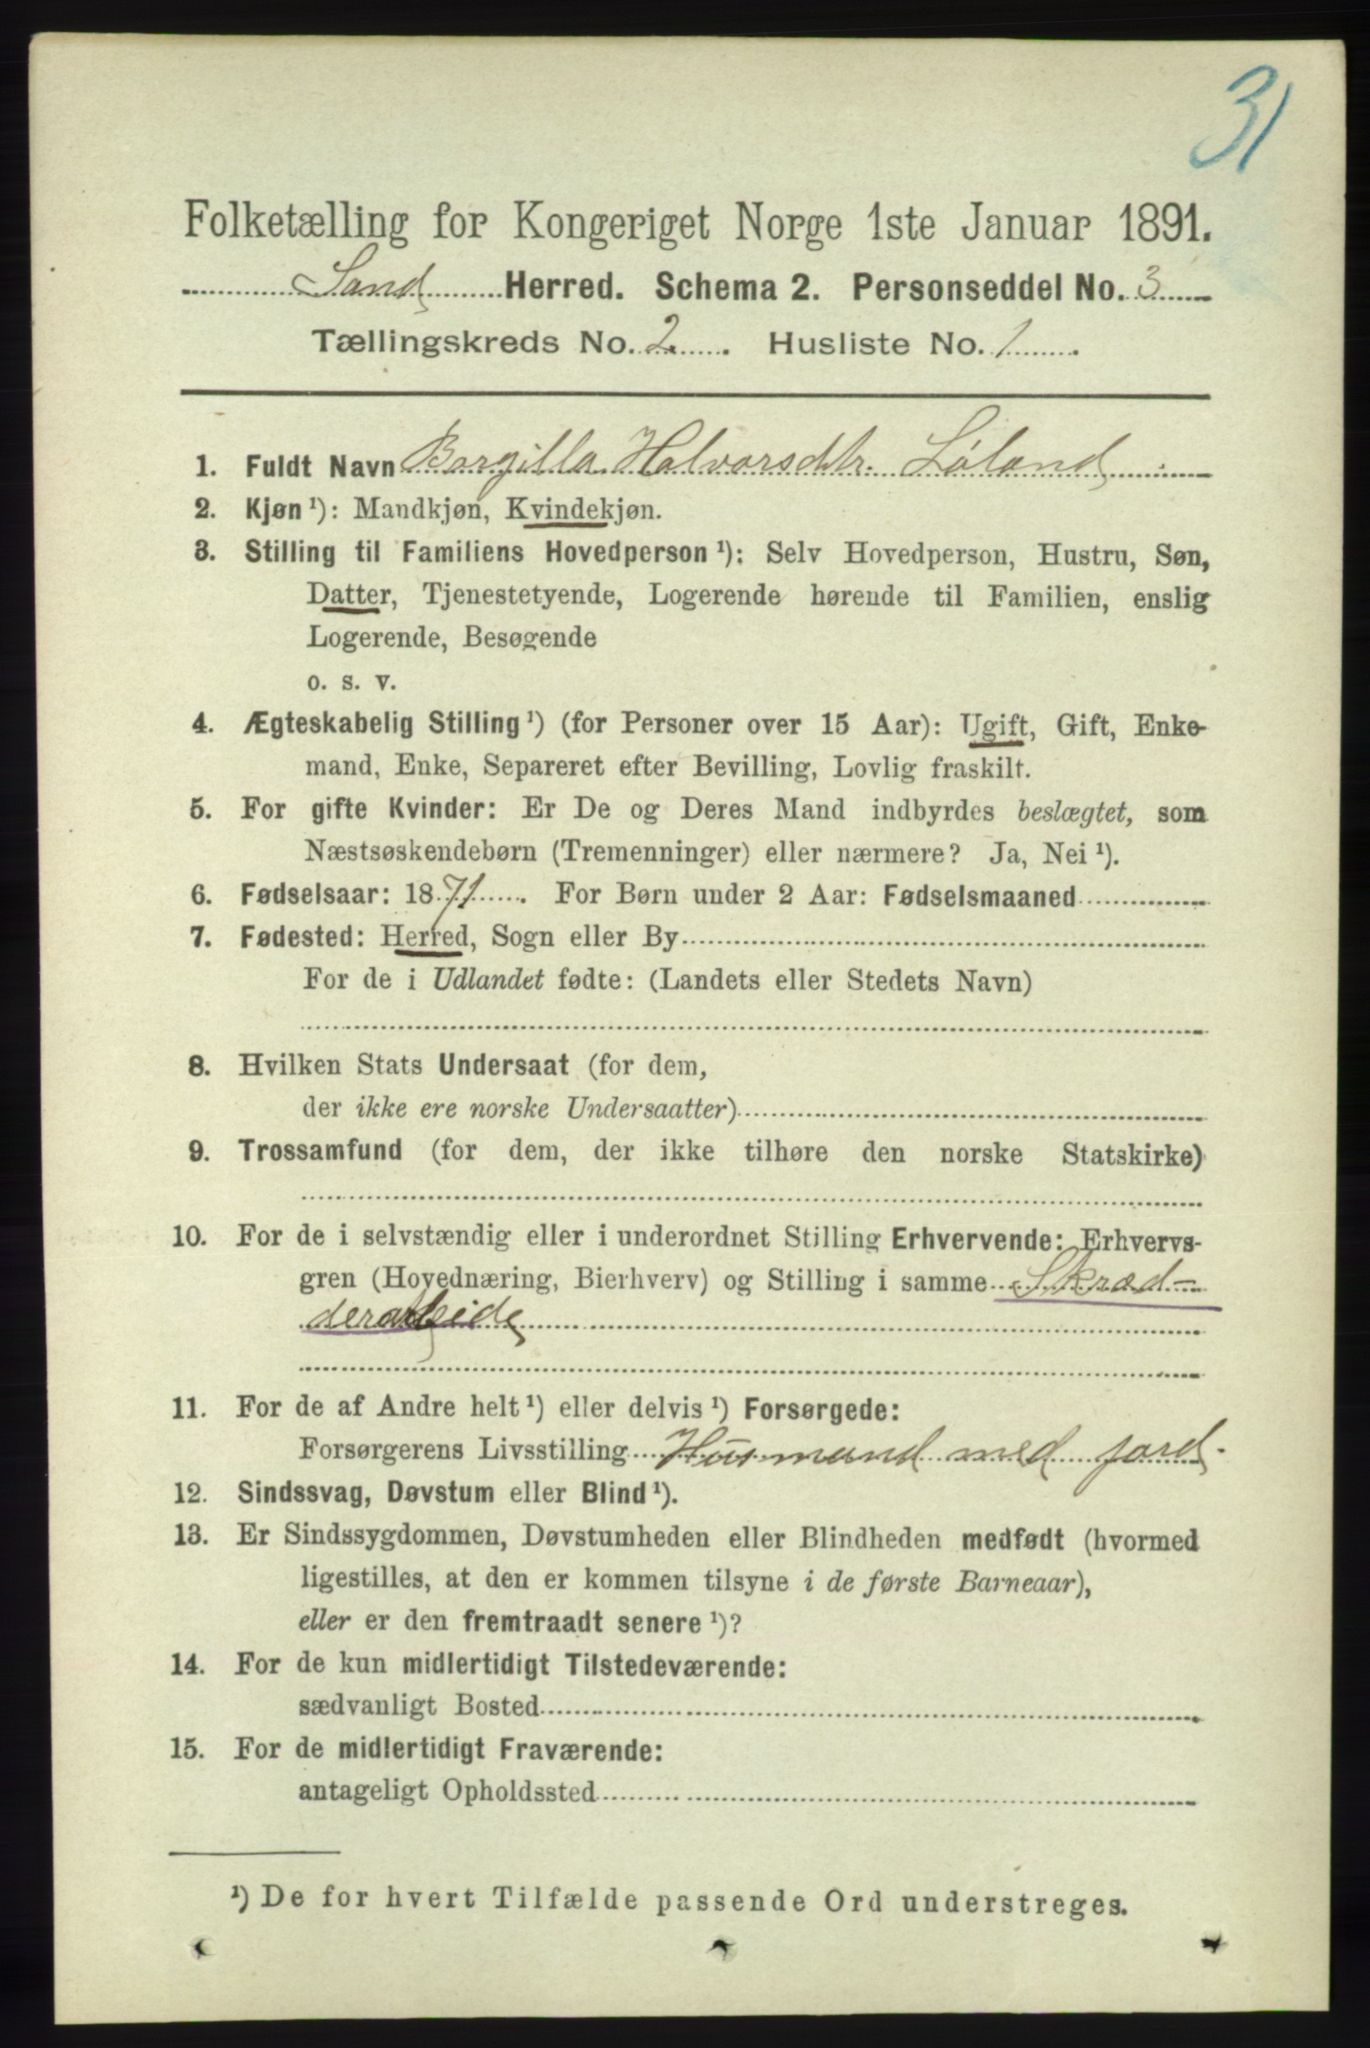 31
Folketælling for Kongeriget Norge 1ste Januar 1891.
Sand Herred. Schema 2. Personseddel No. 3
Tællingskreds No. 2. Husliste No. 1.
1. Fuldt Navn Borgilla Halvorsdtr. Løland
2. Kjøn ¹): Mandkjøn, Kvindekjøn.
3. Stilling til Familiens Hovedperson ¹): Selv Hovedperson, Hustru, Søn,
Datter, Tjenestetyende, Logerende hørende til Familien, enslig
Logerende, Besøgende
o. s. v.
4. Ægteskabelig Stilling ¹) (for Personer over 15 Aar): Ugift, Gift, Enke-
mand, Enke, Separeret efter Bevilling, Lovlig fraskilt.
5. For gifte Kvinder: Er De og Deres Mand indbyrdes beslægtet, som
Næstsøskendebørn (Tremenninger) eller nærmere? Ja, Nei ¹).
6. Fødselsaar: 1871. For Børn under 2 Aar: Fødselsmaaned
7. Fødested: Herred, Sogn eller By
For de i Udlandet fødte: (Landets eller Stedets Navn)
8. Hvilken Stats Undersaat (for dem,
der ikke ere norske Undersaatter)
9. Trossamfund (for dem, der ikke tilhøre den norske Statskirke)
10. For de i selvstændig eller i underordnet Stilling Erhvervende: Erhvervs-
gren (Hovednæring, Bierhverv) og Stilling i samme Skræd-
derarbeide
11. For de af Andre helt ¹) eller delvis ¹) Forsørgede:
Forsørgerens Livsstilling Husmand med jord.
12. Sindssvag, Døvstum eller Blind ¹).
13. Er Sindssygdommen, Døvstumheden eller Blindheden medfødt (hvormed
ligestilles, at den er kommen tilsyne i de første Barneaar),
eller er den fremtraadt senere ¹)?
14. For de kun midlertidigt Tilstedeværende:
sædvanligt Bosted
15. For de midlertidigt Fraværende:
antageligt Opholdssted
¹) De for hvert Tilfælde passende Ord understreges.